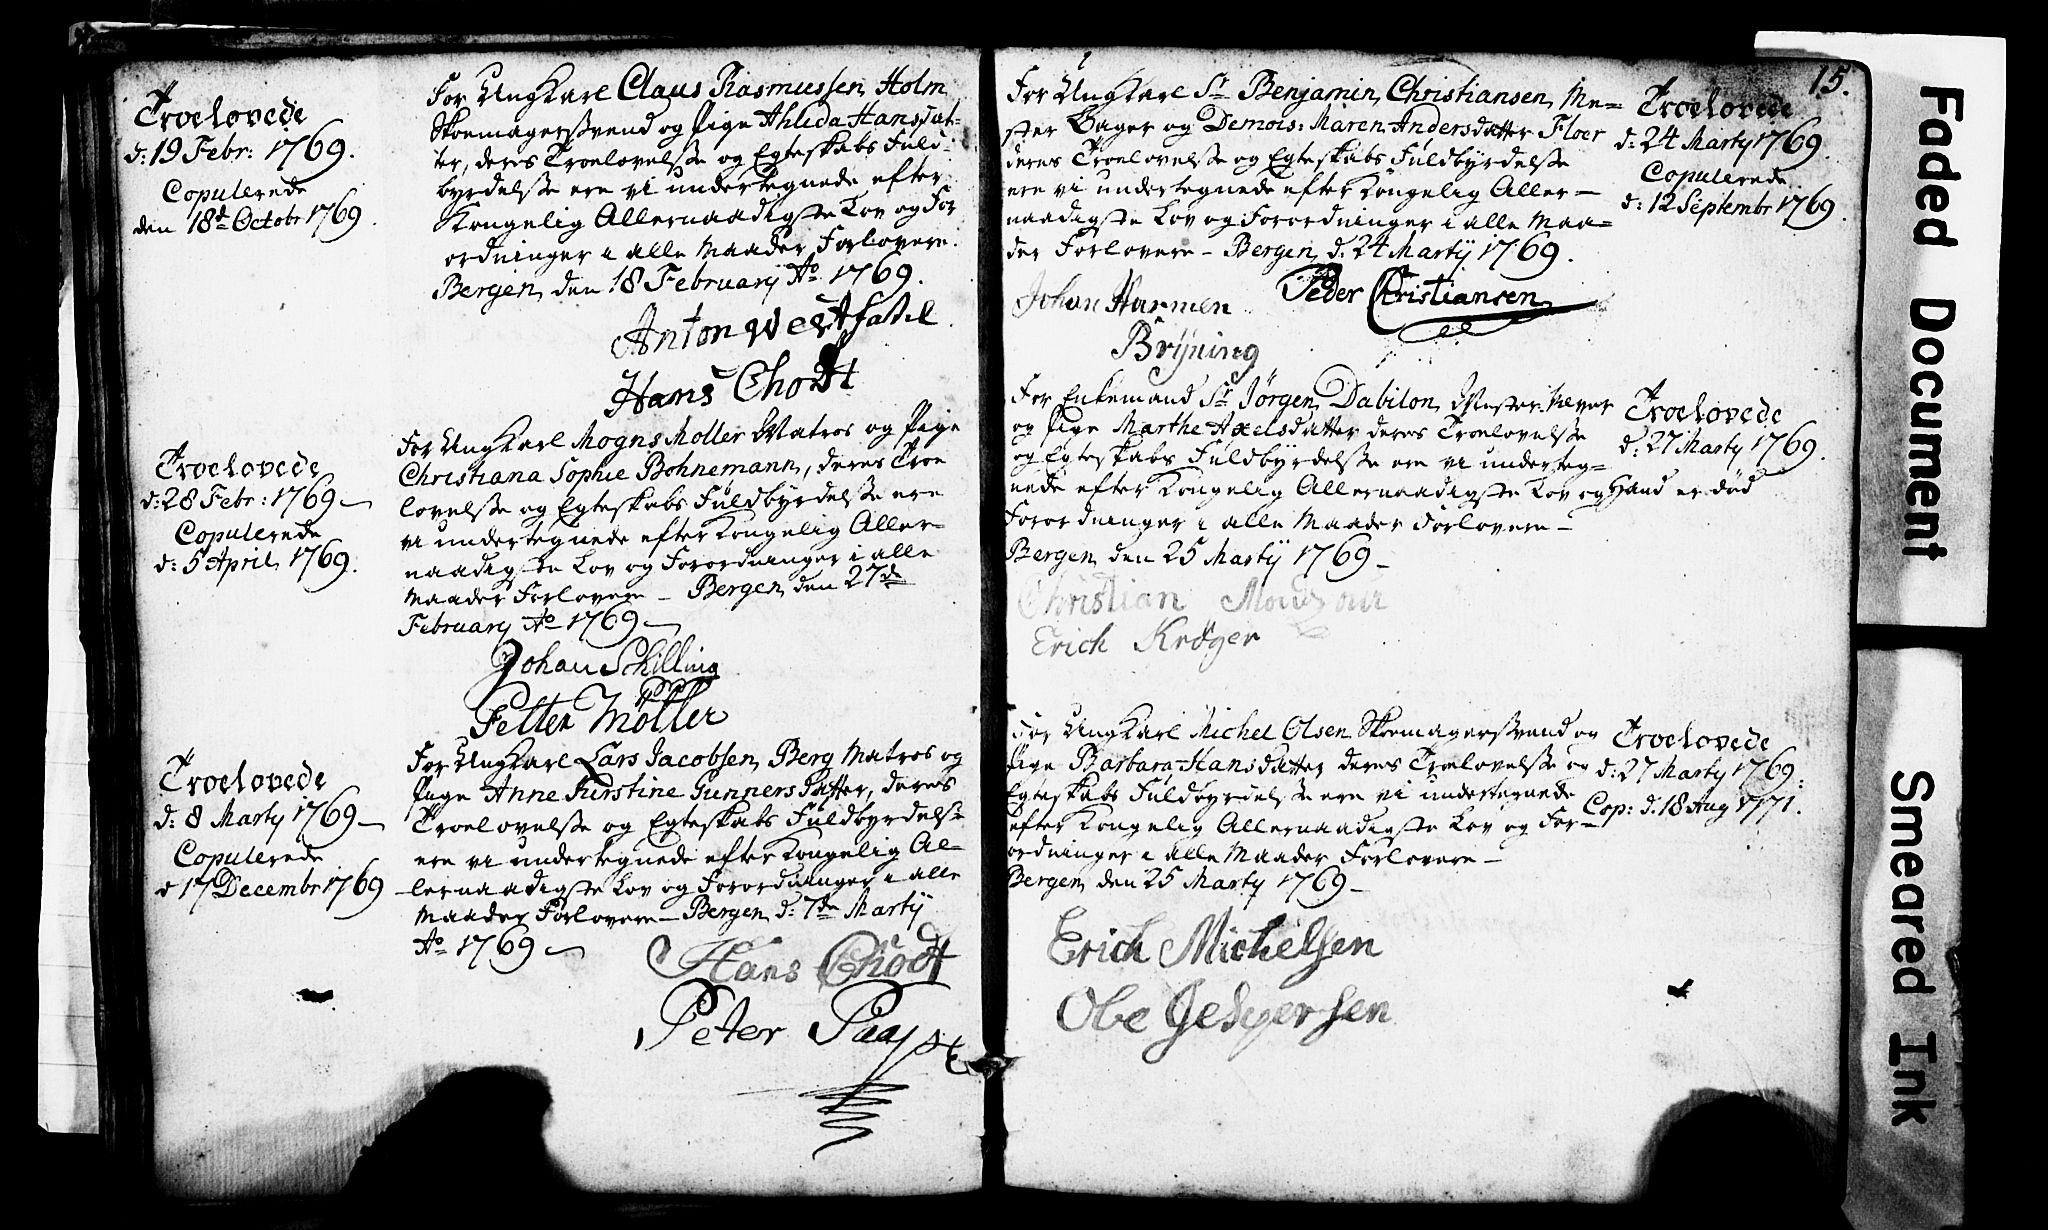 Troelovede
d: 19 Febr: 1769.
Copulerede
den 18de Octobr 1769.
For Ungkarl Claus Rasmussen Holm
Skoemagersvend og Pige Ahlida Hansdat-
ter, deres Troelovelsse og Egteskabs Fuld-
byrdelsse ere vi undertegnede efter
Kongelig Allernaadigste Lov og For
ordninger i alle Maader Forlovere.
Bergen den 18 February Ao 1769.
Anton Westfahl
Hans Chodt
Troelovede
d: 28 Febr: 1769
Copulerede
d: 5 April 1769.
For Ungkarl Mogns Moller Matros og Pige
Christiana Sophie Bohnemann, deres Troe
lovelsse og Egteskabs Fuldbyrdelsse ere
vi undertegnede efter Kongelig Aller-
naadigste Lov og Forordninger i alle
Maader Forlovere – Bergen den 27de
February Ao 1769
Johan Schilling
Petter Möller
Troelovede
d: 8 Marty 1769
Copulerede
d 17 Decembr 1769
For Ungkarl Lars Jacobsen Berg Matros og
Pige Anne Kirstine Gunners Datter, deres
Troelovelsse og Egteskabs Fuldbyrdelsse
ere vi undertegnede efter Kongelig Al-
lernaadigste Lov og Forordninger i alle
Maader Forlovere – Bergen d: 7de Martij
Ao 1769
Hans Chodt
Peter Paa
15.
For Ungkarl Sr Benjamin Christiansen Me-
ster Bager og Demois: Maren Andersdatter Floer
deres Troelovelsse og Egteskabs Fuldbyrdelsse
ere vi undertegnede efter Kongelig Aller-
naadigste Lov og Forordninger i alle Maa-
der Forlovere – Bergen d. 24 Martij 1769.
Johan Harmen
Brÿning
Peder Christiansen
Troelovede
d: 24 Marty 1769.
Copulerede
d: 12 Septembr 1769.
For Enkemand Sr Jörgen Dabilon Mester Væver
og Pige Marthe Axelsdatter deres Troelovelsse
og Egteskabs Fuldbyrdelsse ere vi underteg-
nede efter Kongelig Allernaadigste Lov og
Forordninger i alle Maader Forlovere –
Bergen den 25 Martij 1769 –
Christian
Erich Kröger
Troelovede
d: 27 Marty 1769.
Hand er död
For Ungkarl Michel Olsen Skoemagersvend og
Pige Barbara Hansdatter deres Troelovelsse og
Egteskabs Fuldbyrdelsse ere vi undertegnede
efter Kongelig Allernaadigste Lov og For-
ordninger i alle Maader Forlovere –
Bergen den 25 Marty 1769 –
Erich Michelsen
Obe Jespersen
Troelovede
d: 27 Marty 1769:
Cop: d: 18 Aug 1771.
Faded Document
Smeared Ink